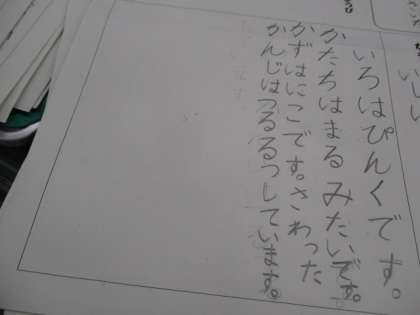 いろはぴんくです。
かたちはまるみたいです。
かずはにこです。さわった
かんじはつるつるしています。